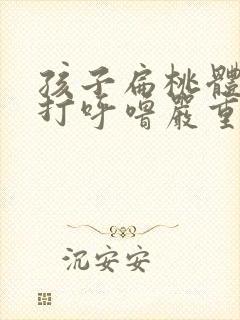 孩子扁桃體
打呼嚕嚴重
沉安安